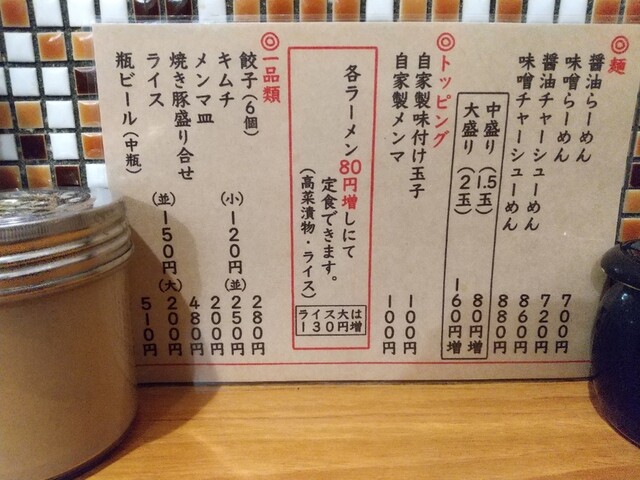 ◎麺
醤油らーめん 700円
味噌らーめん 720円
醤油チャーシューめん 860円
味噌チャーシューめん 880円
中盛り(1.5玉) 80円増
大盛り(2玉) 160円増
◎トッピング
自家製味付け玉子 100円
自家製メンマ 100円
各ラーメン80円増しにて
定食できます。
(高菜漬物・ライス)
ライス大は
130円増
◎一品類
餃子(6個) 280円
キムチ (小)120円 (並)250円
メンマ皿 200円
焼き豚盛り合せ 480円
ライス (並)150円 (大)200円
瓶ビール(中瓶) 510円